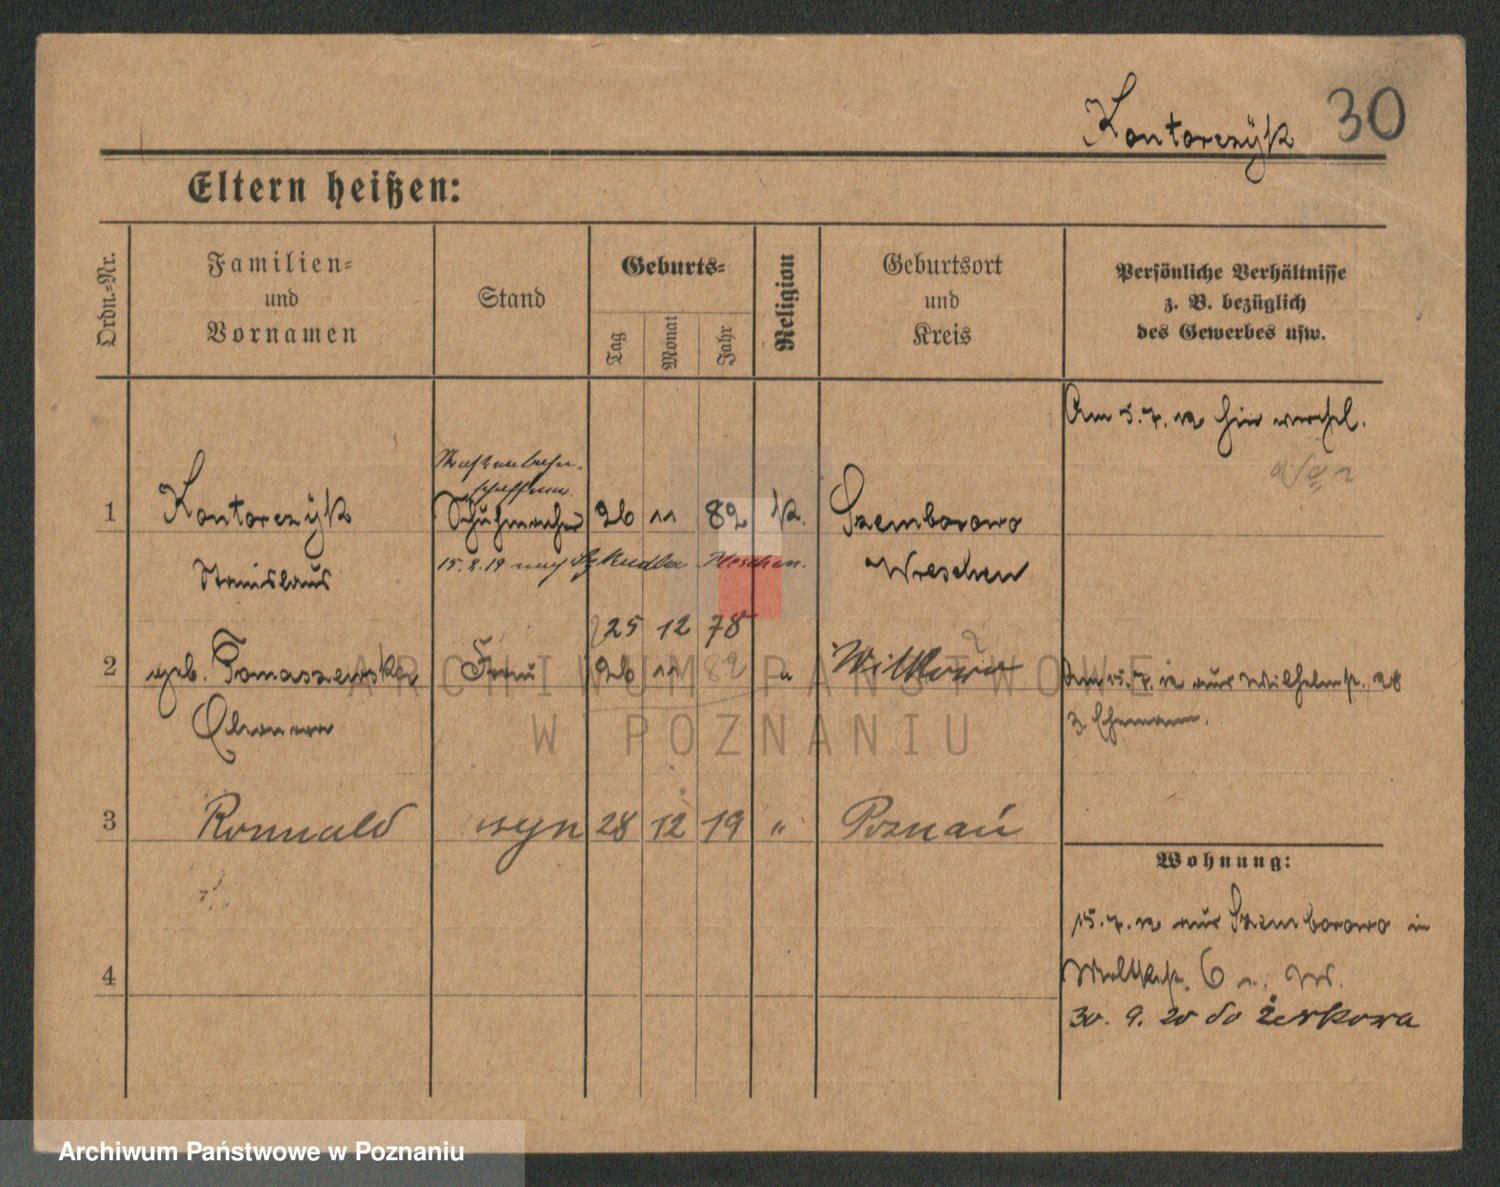 Kontorczÿk 30
Eltern heißen:
Ordn.-Nr.
Familien-
und
Vornamen
Stand
Geburts-
Tag
Monat
Jahr
Religion
Geburtsort
und
Kreis
Persönliche Verhältnisse
z. B. bezüglich
des Gewerbes usw.
Am 5.7.12 hier
Straßenbahn-
schaffner.
1 Kontorczÿk Schuhmacher 26 11 82 k. Szemborowo
15.2.19 nach Pleschen.
Stanislaus Wreschen
25 12 78
2 geb. Tomaszewska Frau 26 11 82 " Witkowo
Am 15.7.12 aus Wilhelmstr. 28
z. Ehemann.
3 Romuald syn 28 12 19 " Poznań
Wohnung:
15.7.12 aus Szemborowo in
4
6
30. 9. 20 do Żerkowa
ARCHIWUM PAŃSTWOWE
W POZNANIU
Archiwum Państwowe w Poznaniu